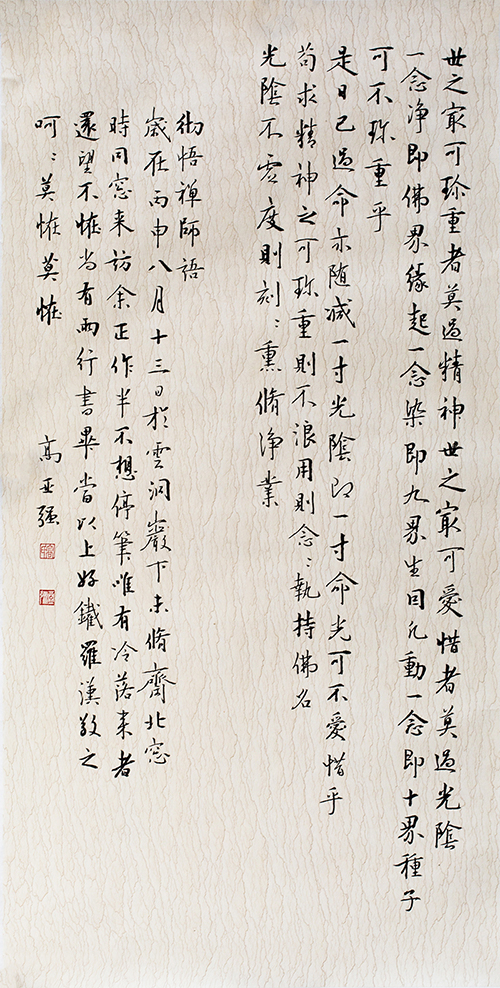 世之最可珍重者莫過精神世之最可愛惜者莫過光陰
一念净即佛界缘起一念染即九界生因凡動一念即十界種子
可不珍重乎
是日已過命亦随减一寸光陰即一寸命光可不愛惜乎
苟求精神之可珍重則不浪用則念〻執持佛名
光陰不虚度則刻〻熏脩净業
彻悟禅師語
嵗在丙申八月十三日於雲洞巖下未脩齋北窓
時同窓来訪余正作半不想停筆唯有冷落来者
還望不怪尚有兩行書畢當以上好鐵羅漢敬之
呵〻莫怪莫怪
高亚强